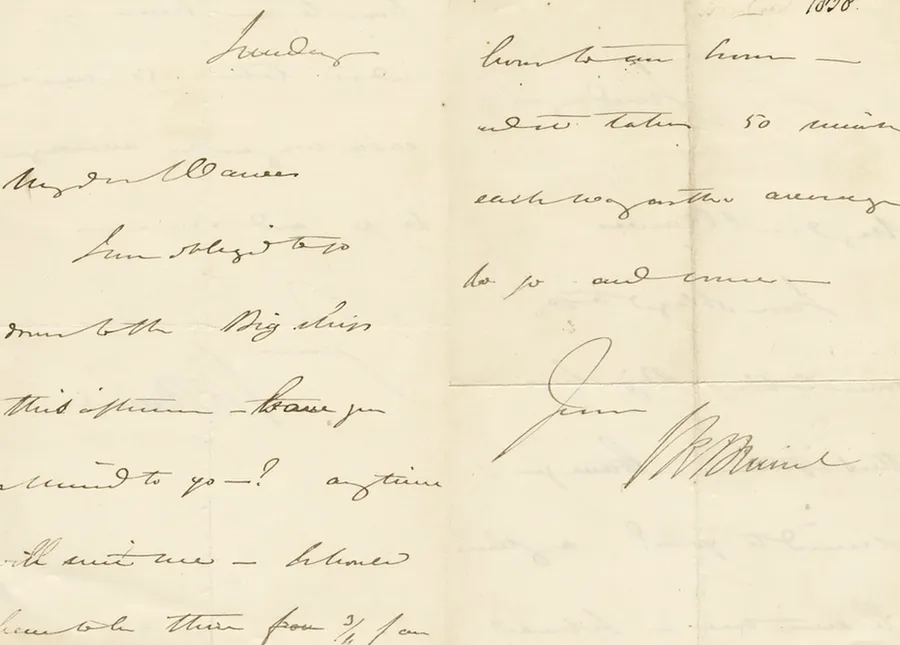 Sunday
My dear Manes
I am obliged to go
down to the Big ship
this afternoon – Have you
a mind to go –? anytime
will suit me – I should
have to be there from 3/4 of an
1858.
hour to an hour –
and it takes 50 minutes
each way on the average
to go and come –
Yours
I K Brunel